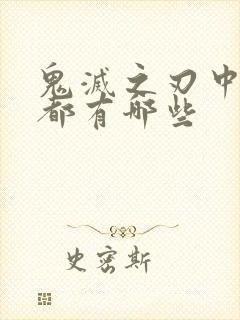 鬼滅之刃中
都有哪些
史密斯